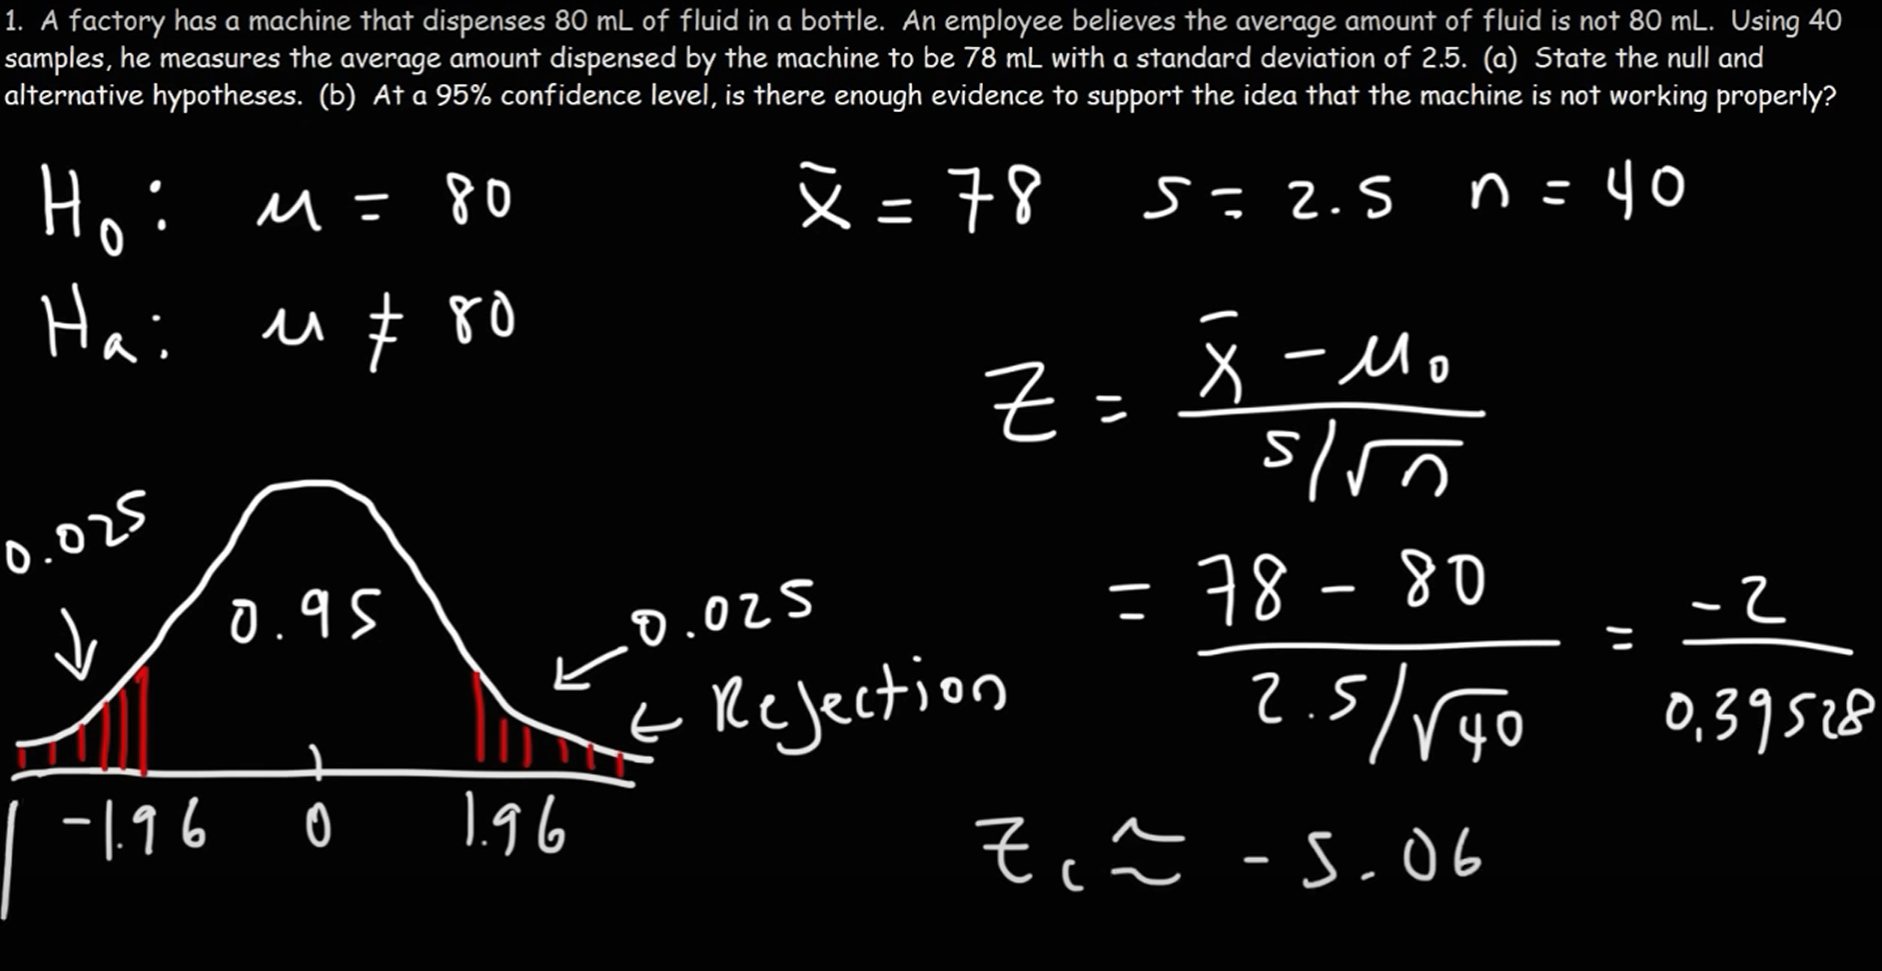 1. A factory has a machine that dispenses 80 mL of fluid in a bottle. An employee believes the average amount of fluid is not 80 mL. Using 40
samples, he measures the average amount dispensed by the machine to be 78 mL with a standard deviation of 2.5. (a) State the null and
alternative hypotheses. (b) At a 95% confidence level, is there enough evidence to support the idea that the machine is not working properly?
H₀: μ = 80
x̄ = 78 s = 2.5 n = 40
Hₐ: μ ≠ 80
Z = (x̄ - μ₀) / (s/√n)
0.025
0.95
0.025
= (78 - 80) / (2.5/√40) = -2 / 0.39528
← Rejection
-1.96 0 1.96
Z꜀ ≈ -5.06